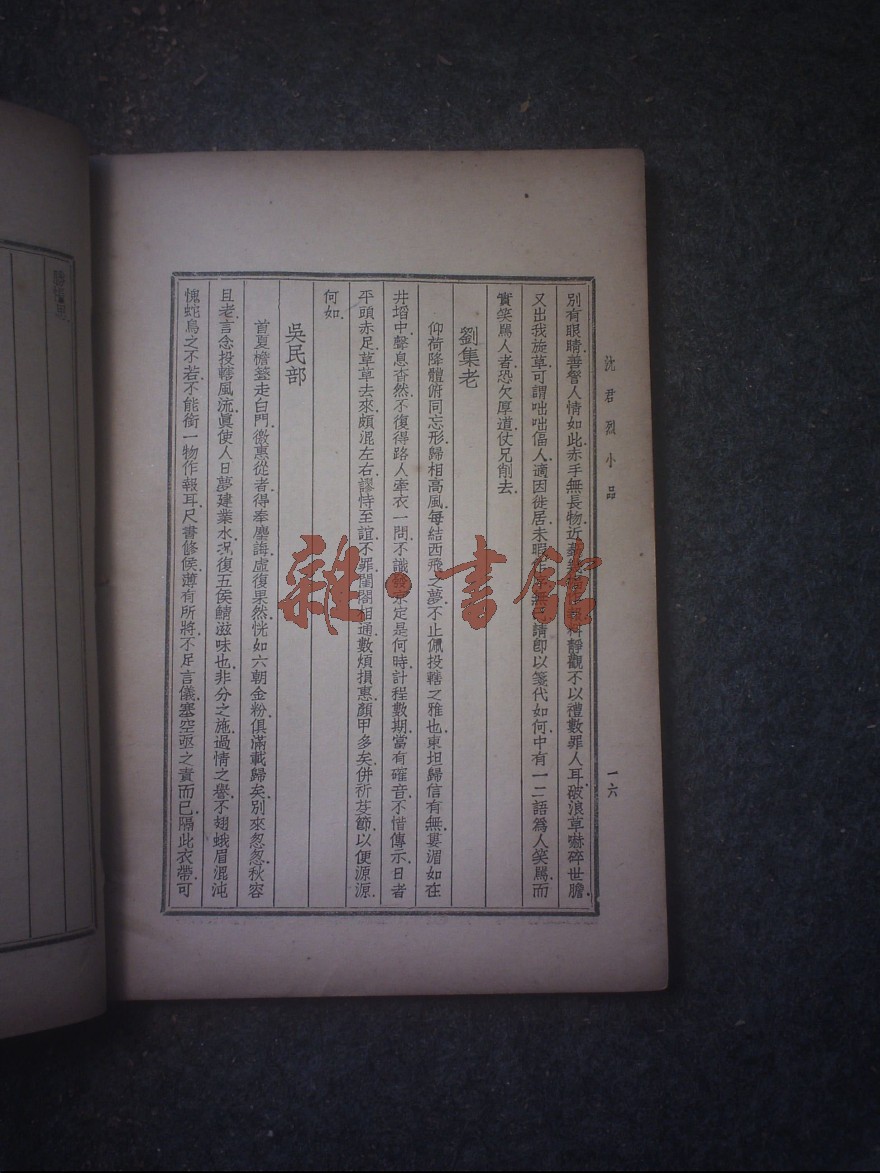 沈君烈小品
一六
別有眼睛.善警人情如此.赤手無長物.近
靜觀不以禮數罪人耳.破浪草嚇碎世膽.
又出我旋草.可謂咄咄偪人.適因徙居.未暇
請卽以箋代如何.中有一二語爲人笑罵.而
實笑罵人者.恐欠厚道.仗兄削去.
劉集老
仰荷降體俯同.忘形歸相高風.每結西飛之夢.不止佩投轄之雅也.東坦歸信有無.婁湄如在
井塪中.聲息杳然.不復得路人牽衣一問.不識發京定是何時.計程數期.當有確音.不惜傳示.日者
平頭赤足.草草去來.頗溷左右.謬恃至誼.不罪.閨閤相通.數煩損惠.顏甲多矣.併祈芟節.以便源源.
何如.
吳民部
首夏檐簦走白門.徼惠從者.得奉麈誨.虛復果然.恍如六朝金粉.俱滿載歸矣.別來忽忽.秋容
且老.言念投轄風流.眞使人日夢建業水.況復五侯鯖滋味也.非分之施.過情之譽.不翅蛾眉混沌.
愧蛇鳥之不若.不能銜一物作報耳.尺書修候.薄有所將.不足言儀.塞空亟之責而已.隔此衣帶.可
雜·書館